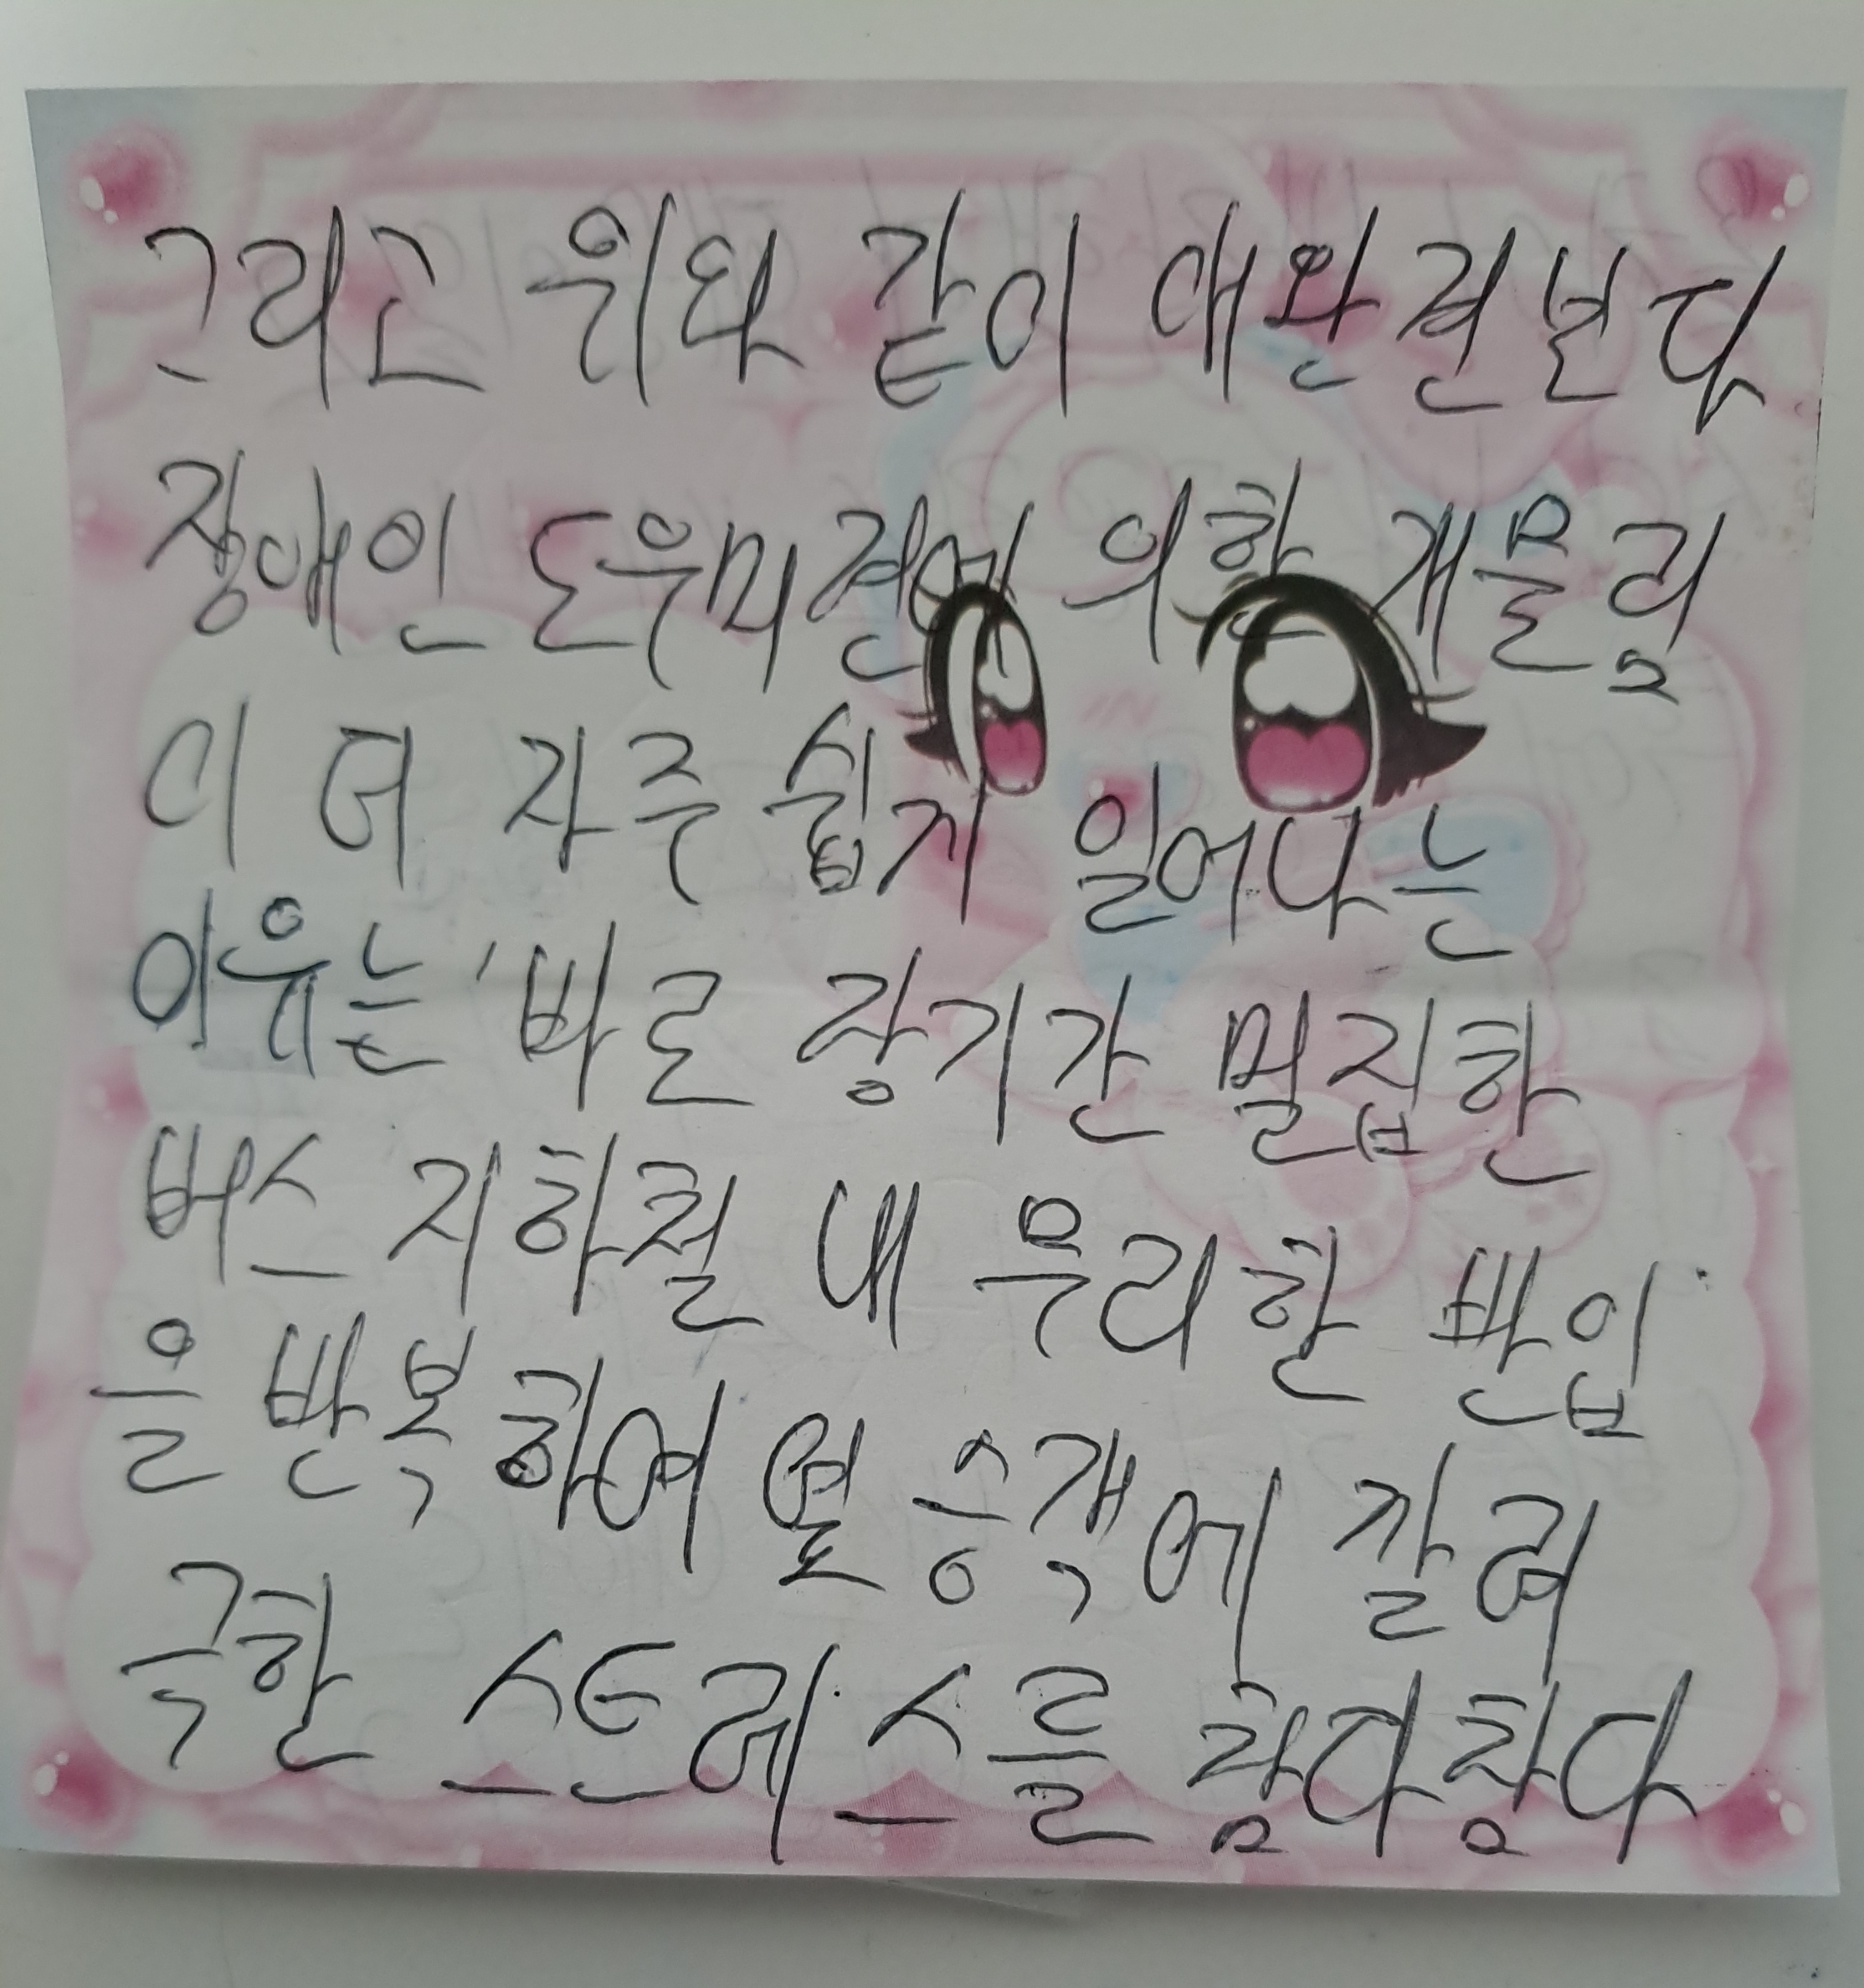 그리고 위와 같이 애완견보다
장애인 도우미견에 의한 개물림
이 더 자주 쉽게 일어나는
이유는 '바로 장기간 밀집한
버스 지하철 내 무리한 반입
을 반복하여 열 승객에 깔려
극한 스트레스를 참다참다